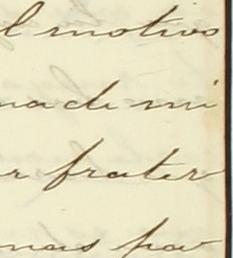 l motivo
na de mi
r frater
nas por